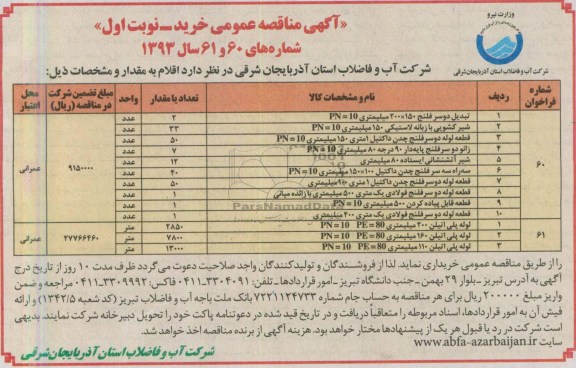 «آگهی مناقصه عمومی خرید ـ نوبت اول»
شماره‌های ۶۰ و ۶۱ سال ۱۳۹۳
وزارت نیرو
شرکت آب و فاضلاب استان آذربایجان شرقی
شرکت آب و فاضلاب استان آذربایجان شرقی در نظر دارد اقلام به مقدار و مشخصات ذیل:
شماره فراخوان ردیف نام و مشخصات کالا تعداد یا مقدار واحد مبلغ تضمین شرکت در مناقصه (ریال) محل اعتبار
۶۰ ۱ تبدیل دوسر فلنج ۱۵۰×۲۰۰ میلیمتری PN=10 ۲ عدد ۹۱۵۰۰۰۰ عمرانی
۲ شیر کشویی با زبانه لاستیکی ۱۵۰ میلیمتری PN=10 ۳۳ عدد
۳ قطعه لوله دوسر فلنج چدن داکتیل ۱ متری ۱۵۰ میلیمتری PN=10 ۵۰ عدد
۴ زانو دوسر فلنج پایه‌دار ۹۰ درجه ۸۰ میلیمتری PN=10 ۷ عدد
۵ شیر آتشنشانی ایستاده ۸۰ میلیمتری ۱۲ عدد
۶ سه‌راه سه سر فلنج چدن داکتیل ۱۰۰×۱۵۰ میلیمتری PN=10 ۴۰ عدد
۷ قطعه لوله دوسر فلنج چدن داکتیل ۱ متری میلیمتری ۵۰ عدد
۸ قطعه لوله دوسر فلنج فولادی یک متری ۵۰۰ میلیمتری با زائده میانی ۱ عدد
۹ قطعه قابل پیاده کردن ۵۰۰ میلیمتری PN=10 ۱ عدد
۱۰ قطعه لوله دوسر فلنج فولادی یک متری ۴۰۰ میلیمتری ۱ عدد
۶۱ ۱ لوله پلی اتیلن ۲۰۰ میلیمتری PN=10 PE=80 ۲۸۵۰ متر ۲۷۷۶۶۴۶۰ عمرانی
۲ لوله پلی اتیلن ۱۶۰ میلیمتری PN=10 PE=80 ۷۸۰۰ متر
۳ لوله پلی اتیلن ۱۱۰ میلیمتری PN=10 PE=80 ۱۳۰۰۰ متر
را از طریق مناقصه عمومی خریداری نماید. لذا از فروشندگان و تولیدکنندگان واجد صلاحیت دعوت می‌گردد ظرف مدت ۱۰ روز از تاریخ درج
آگهی به آدرس تبریز ـ بلوار ۲۹ بهمن ـ جنب دانشگاه تبریز ـ امور قراردادها ـ تلفن: ۳۳۰۴۰۹۱ـ۰۴۱۱ فاکس: ۳۳۰۹۹۹۲ـ۰۴۱۱ مراجعه و ضمن
واریز مبلغ ۲۰۰۰۰۰ ریال برای هر مناقصه به حساب جام شماره ۷۲۲۱۱۲۴۷۳۳ بانک ملت باجه آب و فاضلاب تبریز (کد شعبه ۱۳۴۲/۵) و ارائه
فیش آن به امور قراردادها، اسناد مربوطه را متعاقباً دریافت و در تاریخ قید شده در دعوتنامه پاکت خود را تحویل دبیرخانه شرکت نمایند. بدیهی
است شرکت در رد یا قبول هر یک از پیشنهادها مختار خواهد بود. هزینه آگهی از برنده مناقصه اخذ خواهد شد.
سایت www.abfa-azarbaijan.ir
شرکت آب و فاضلاب استان آذربایجان شرقی
ParsNamadData